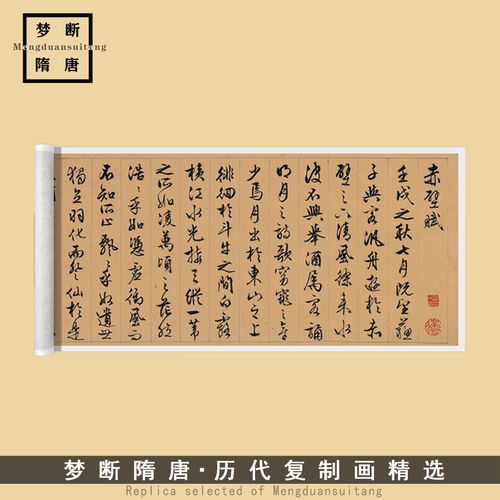 梦断
Mengduansuitang
隋唐
赤壁賦
壬戌之秋七月既望蘇
子與客汎舟遊於赤
壁之下清風徐來水
波不興舉酒屬客誦
明月之詩歌窈窕之章
少焉月出於東山之上
徘徊於斗牛之間白露
橫江水光接天縱一葦
之所如凌萬頃之茫然
浩〻乎如憑虛御風而
不知所止飄乎如遺世
獨立羽化而登仙於是
梦断隋唐·历代复制画精选
Replica selected of Mengduansuitang